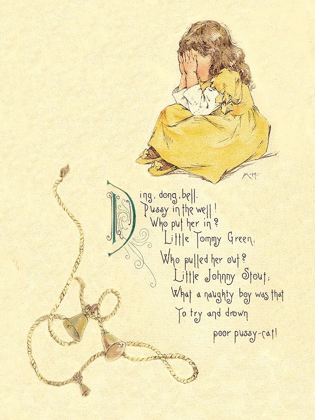 MH
Ding, dong, bell,
Pussy in the well!
Who put her in?
Little Tommy Green.
Who pulled her out?
Little Johnny Stout.
What a naughty boy was that
To try and drown
poor pussy-cat!